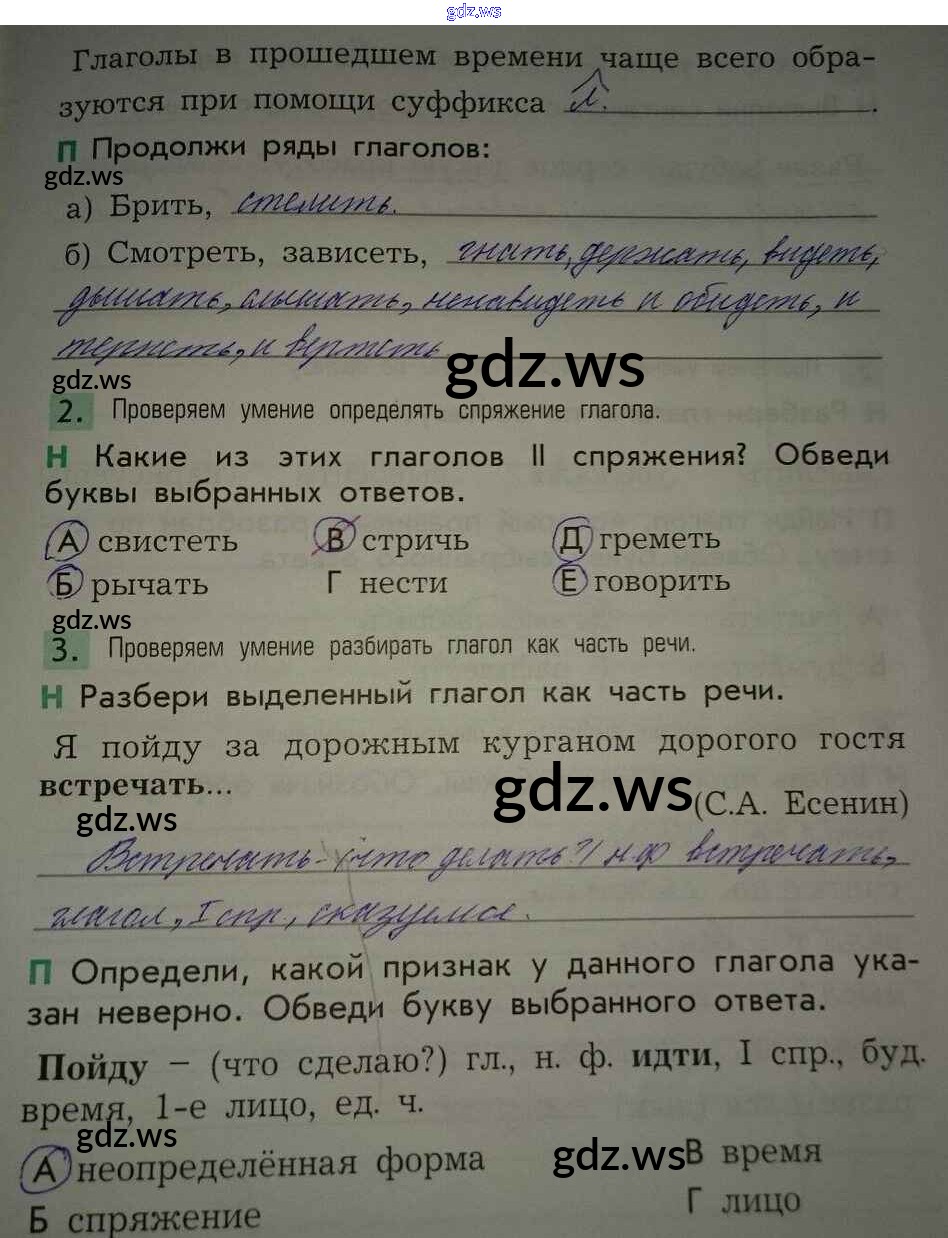 gdz.ws
Глаголы в прошедшем времени чаще всего обра-
зуются при помощи суффикса л.
П Продолжи ряды глаголов:
gdz.ws
а) Брить, стелить.
б) Смотреть, зависеть, гнать, держать, видеть,
дышать, слышать, ненавидеть и обидеть, и
терпеть, и вертеть
gdz.ws
gdz.ws
2. Проверяем умение определять спряжение глагола.
Н Какие из этих глаголов II спряжения? Обведи
буквы выбранных ответов.
А свистеть В стричь Д греметь
Б рычать Г нести Е говорить
gdz.ws
3. Проверяем умение разбирать глагол как часть речи.
Н Разбери выделенный глагол как часть речи.
Я пойду за дорожным курганом дорогого гостя
встречать...
gdz.ws
(С.А. Есенин)
gdz.ws
Встречать - (что делать?) н.ф встречать,
глагол, I спр, сказуемое.
П Определи, какой признак у данного глагола ука-
зан неверно. Обведи букву выбранного ответа.
Пойду – (что сделаю?) гл., н. ф. идти, I спр., буд.
время, 1-е лицо, ед. ч.
gdz.ws
А неопределённая форма В время
gdz.ws
Б спряжение Г лицо